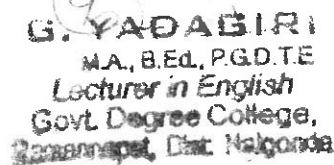 G. YADAGIRI
M.A., B.Ed., P.G.D.T.E
Lecturer in English
Govt. Degree College,
Ramannapet, Dist: Nalgonda